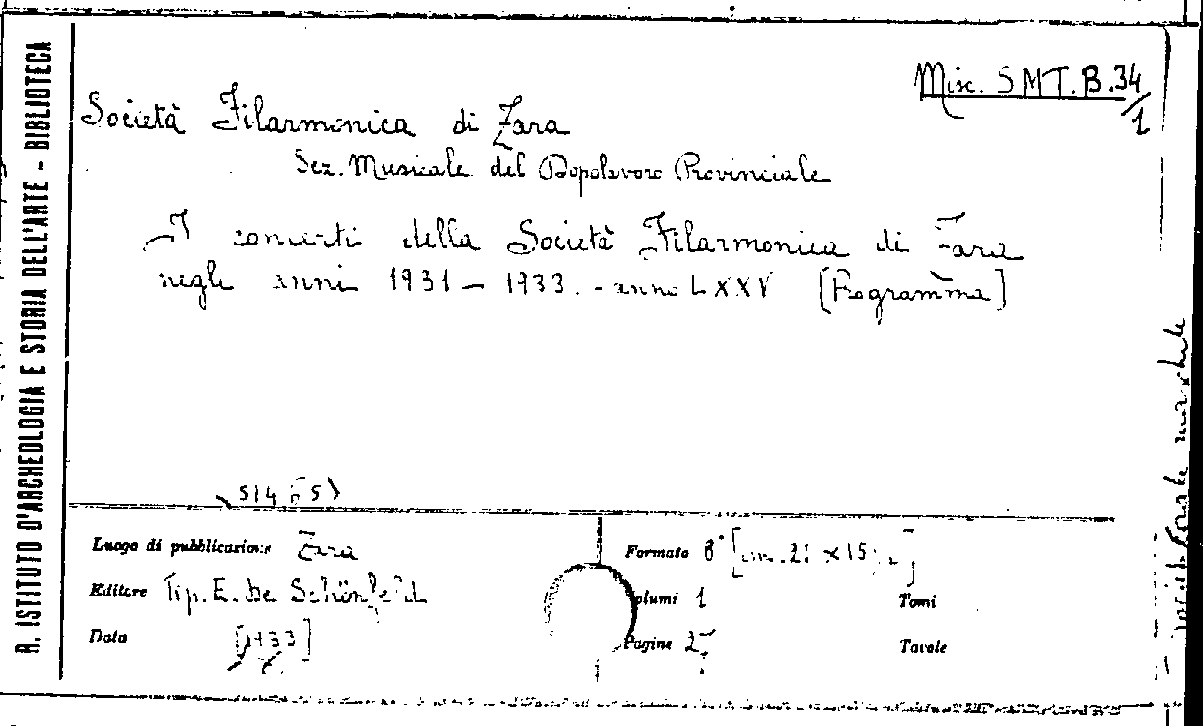 R. ISTITUTO D'ARCHEOLOGIA E STORIA DELL'ARTE - BIBLIOTECA
Misc. SMT.B.34/1
Società Filarmonica di Zara
Sez. Musicale del Dopolavoro Provinciale
I concerti della Società Filarmonica di Zara
negli anni 1931 - 1933. - anno LXXV [Programma]
Luogo di pubblicazione Zara
Formato 8°
Editore Tip. E. de Schönfeld
Volumi 1
Tomi
Data [1933]
Pagine
Tavole